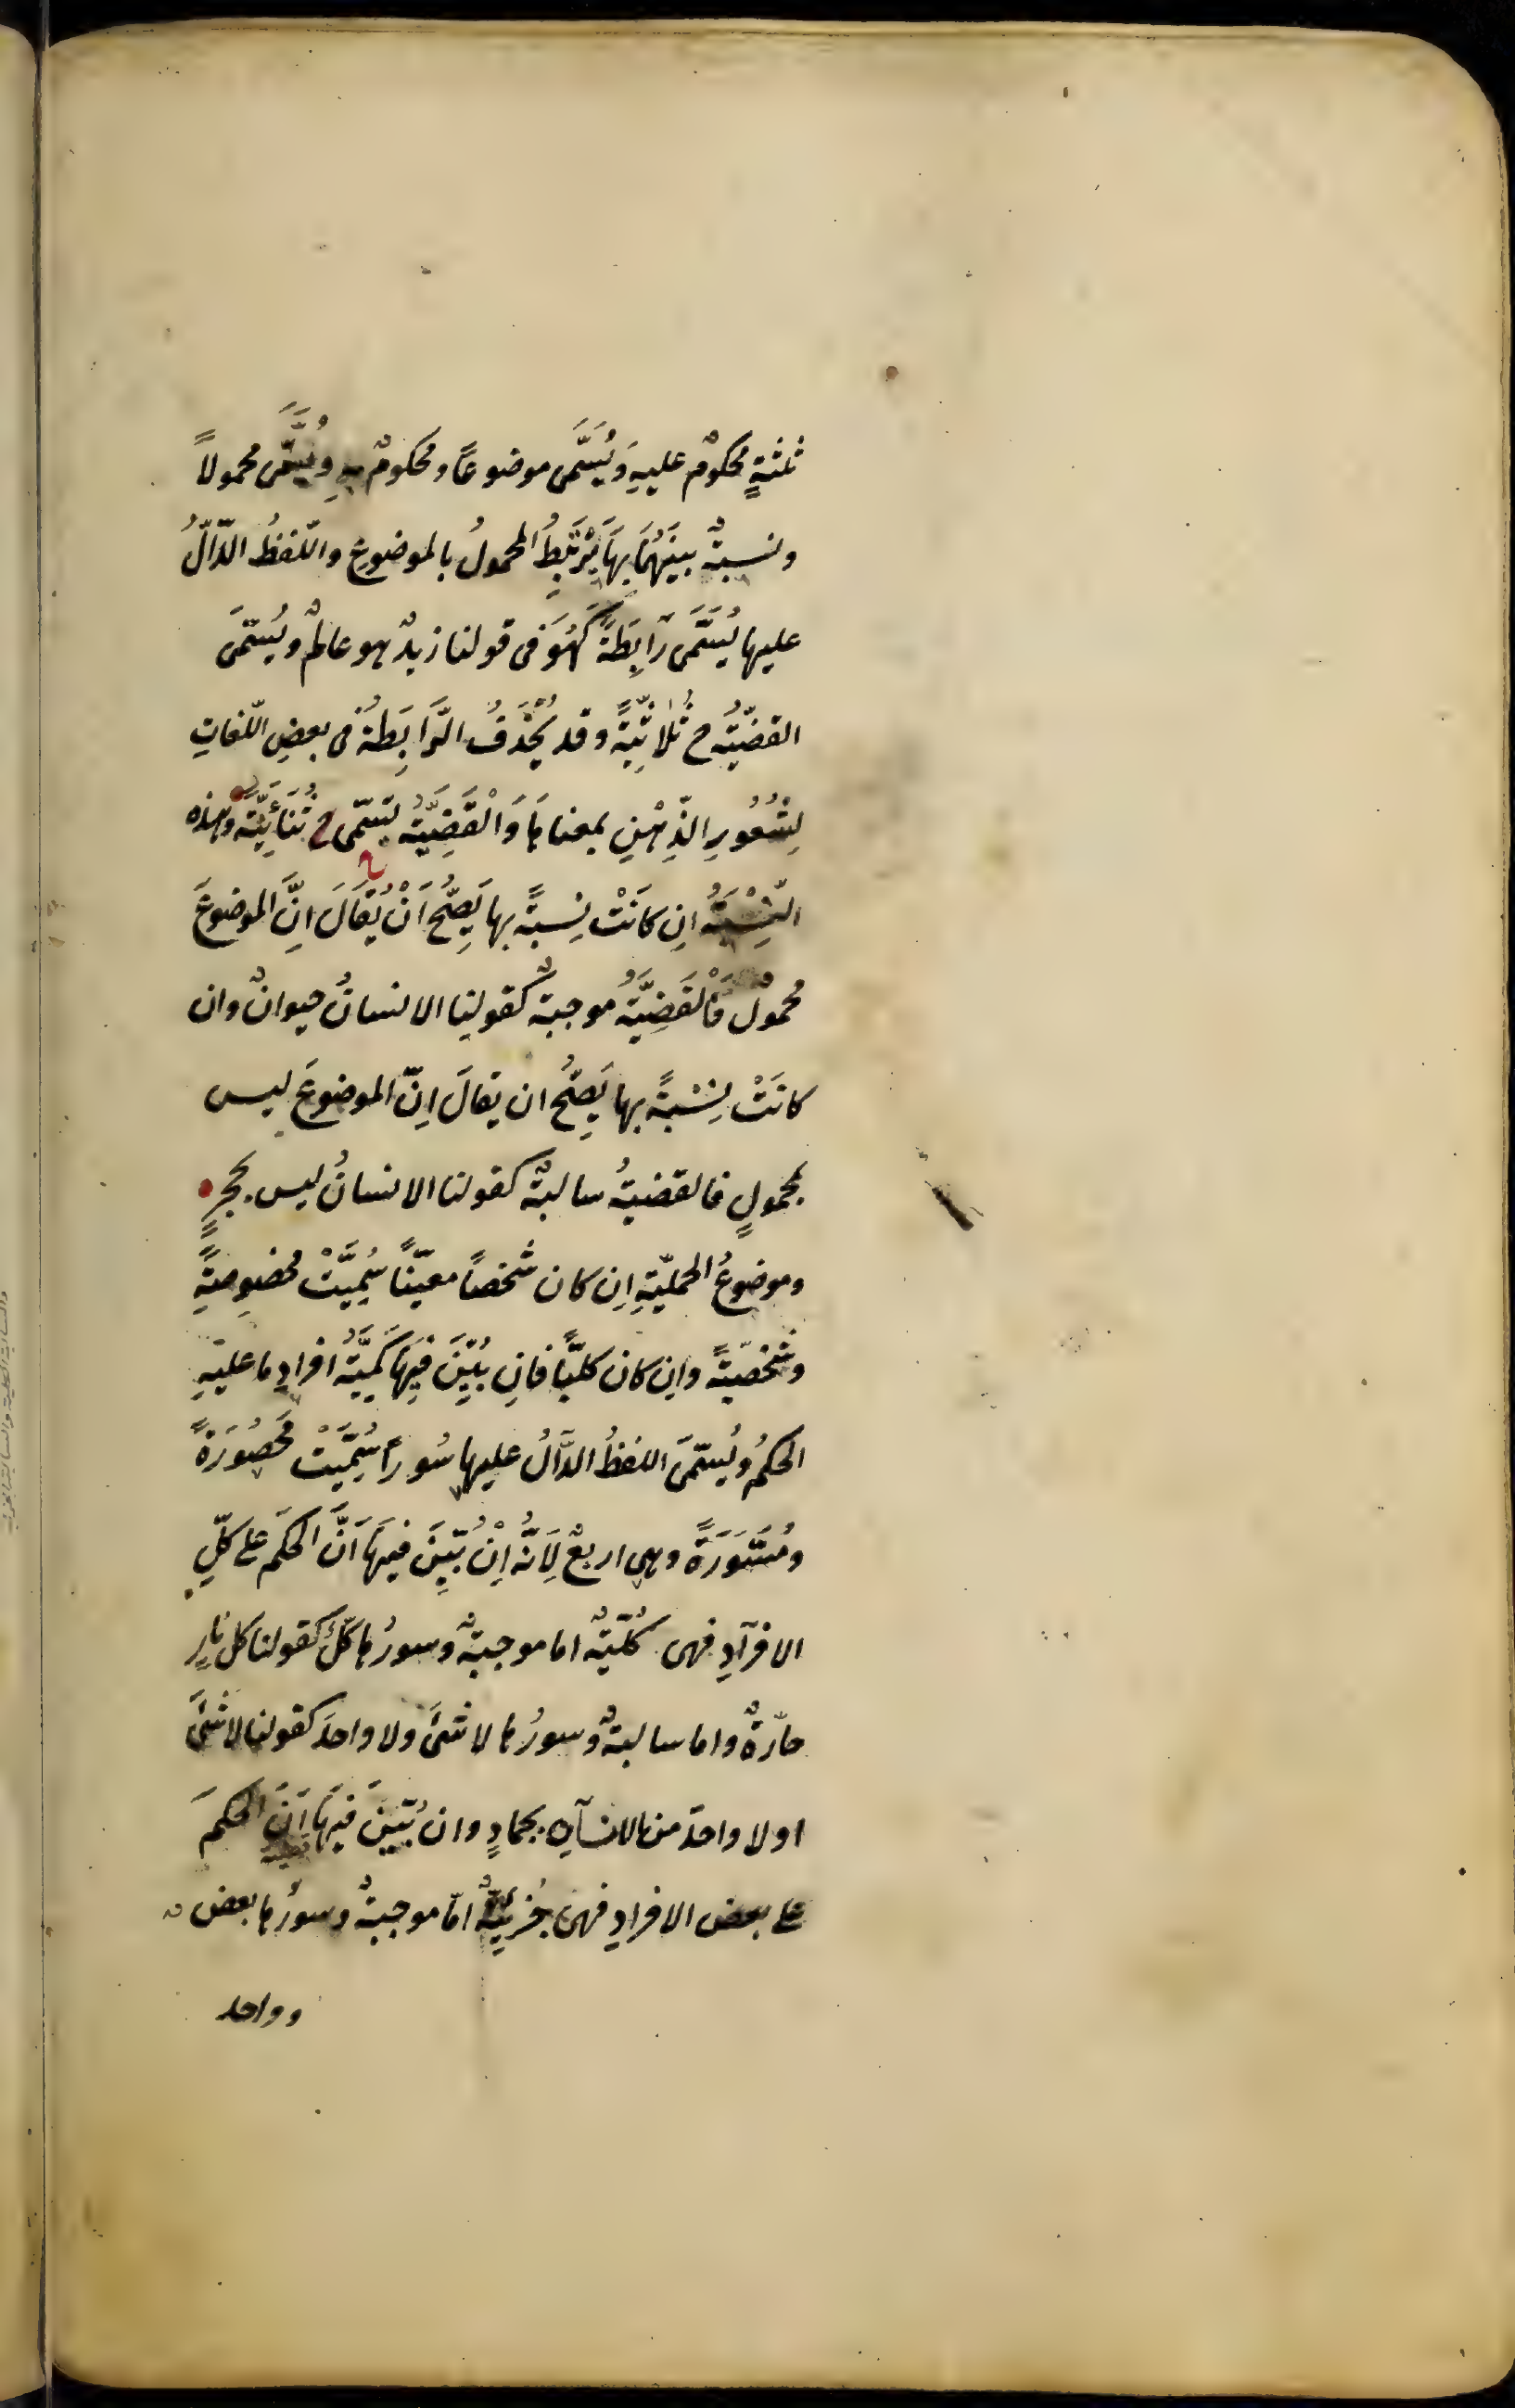 ثلثةٍ محكومٌ عليهِ وَيُسَمَّى موضوعًا ومحكومٌ بهِ وَيُسَمَّى محمولاً
ونسبةٌ بينَهُمَا بهَا يَرْتَبِطُ المحمولُ بالموضوعِ واللّفظُ الدّالُّ
عليها يُسَمَّى رَابِطَةً كَهُوَ فى قولنا زيدٌ هو عالمٌ ويُسمّى
القضيّةُ ح ثُلاثِيّةً وقد يُحْذَفُ الرَّابِطَةُ فى بعضِ اللّغاتِ
لِشُعُورِ الذِّهْنِ بمعناها وَالْقَضِيَّةُ تسَمّى ح ثُنَائِيَّةً وهذه
النِّسْبَةُ اِن كَانَتْ نِسبةً بها يَصِحُّ اَنْ يُقَالَ اِنَّ الموضوعَ
محمولٌ فَالْقَضِيَّةُ موجبةٌ كقولنا الانسانُ حيوانٌ وان
كانَتْ نِسْبَةً بها يَصِحُّ ان يقالَ اِنّ الموضوعَ ليس
بمحمولٍ فالقضيةُ سالبةٌ كقولنا الانسانُ ليس بحجرٍ
وموضوعُ الحمليّةِ اِن كان شخصًا معيّنًا سُمِّيَتْ مخصوصةً
وشخصيّةً واِن كان كليًّا فاِن بُيِّنَ فِيهَا كَمِيَّةُ افرادِ ما عليهِ
الحكمُ ويُسمّى اللفظُ الدَّالُّ عليها سُورا سُمِّيَتْ مَحصُورَةً
ومُسَوَّرَةً وهى اربعٌ لِاَنَّهُ اِنْ بُيِّنَ فيهَا اَنَّ الحكمَ على كلِّ
الافرادِ فهى كُلّيّةٌ اما موجبةٌ وسورُها كلّ كقولنا كل نارٍ
حارّةٌ واما سالبةٌ وسورُها لا شئَ ولا واحدَ كقولنا لا شئَ
اولا واحدَ من الانسانِ بجمادٍ وان بُيِّنَ فيهَا اَنَّ الحكمَ
على بعض الافرادِ فهى جُزئيّةٌ امّا موجبةٌ وسورُها بعض
وواحد